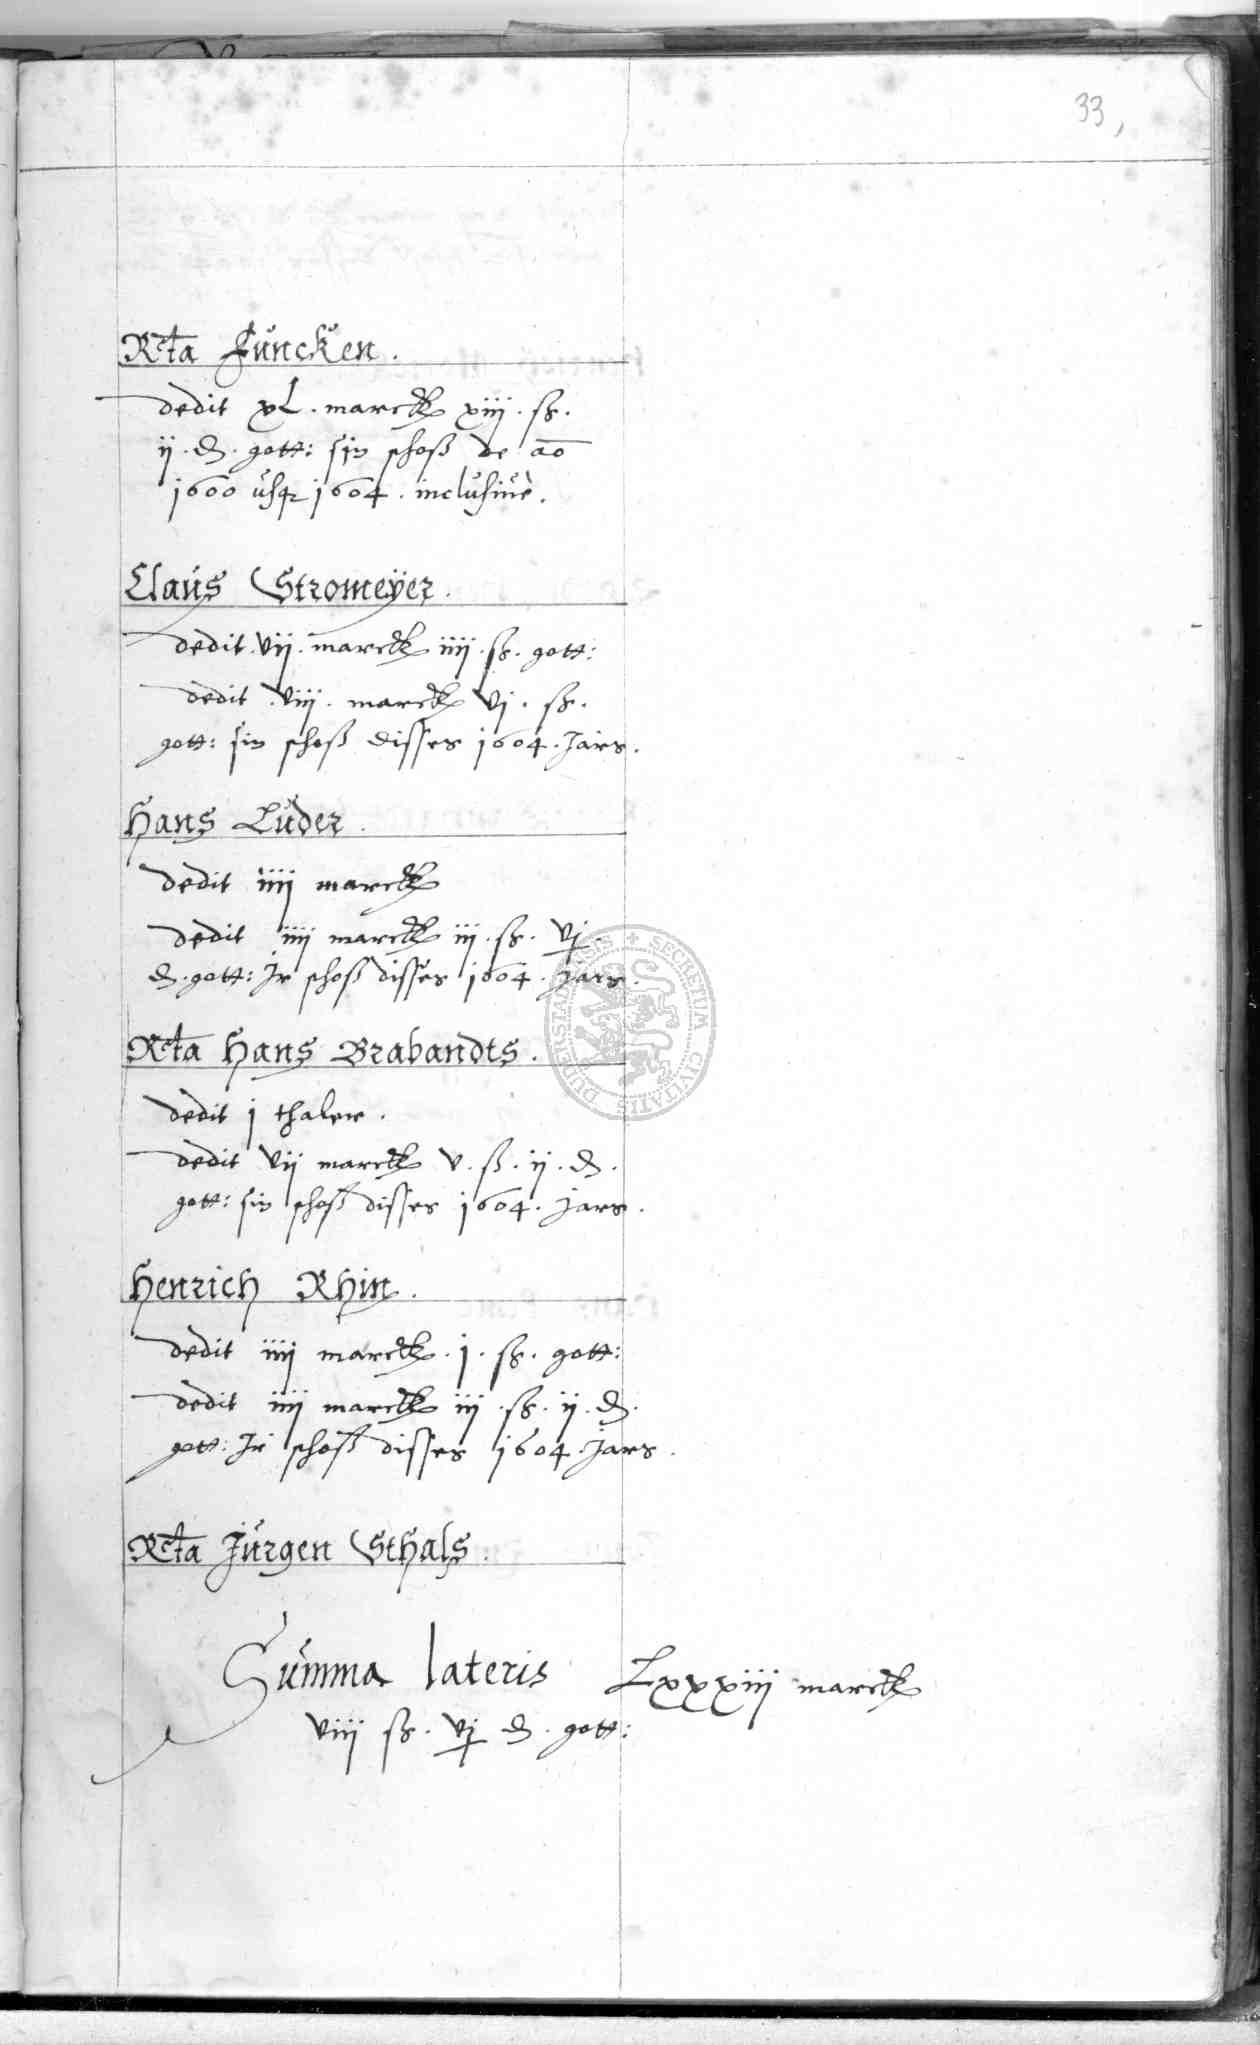 33,
Rcta Juncken.
dedit xL. marck xiij. ß.
ij. d. gott: sin schoß de ao
1600 usq 1604. inclusive.
Claus Stromeÿer.
dedit. vij. marck iiij. ß. gott:
dedit. viij. marck vj. ß.
gott: sin schoß disses 1604. Jars.
Hans Luder.
dedit iiij marck
dedit iiij marck iij. ß. vj.
d. gott: Jr schoß disses 1604. jars.
Rcta Hans Brabandts.
dedit j thaler.
dedit vij marck v. ß. ij. d.
gott: sin schoß disses 1604. jars.
Henrich Rhin.
dedit iiij marck. j. ß. gott:
dedit iiij marck iij. ß. ij. d.
gott: Jr schoß disses 1604. Jars.
Rcta Jurgen Sthals.
Summa lateris Lxxxiij marck
viij ß. vj d. gott:
SECRETUM CIVITATIS DUDERSTADENSIS